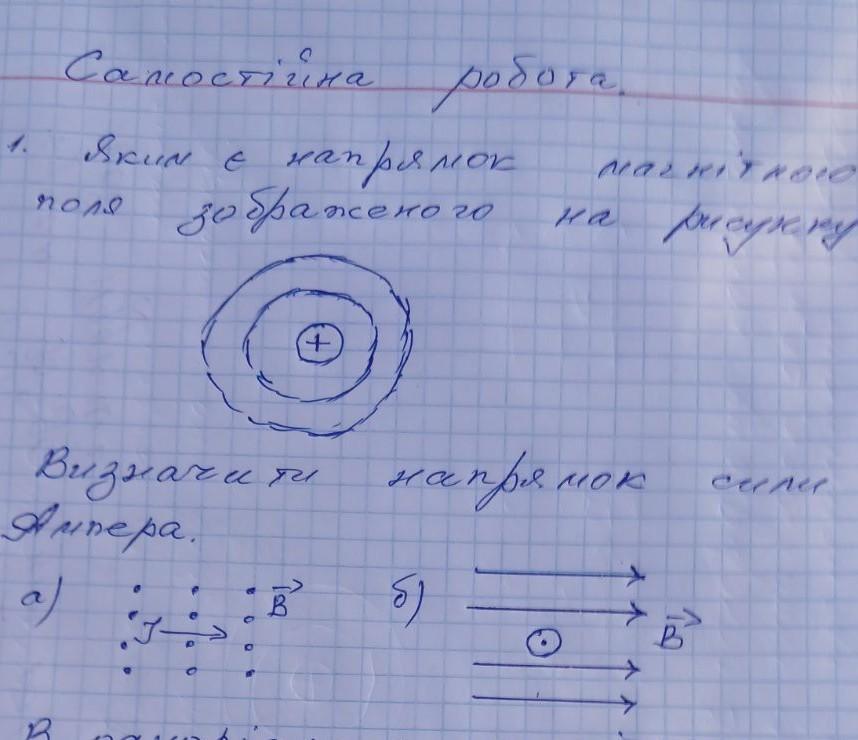 Самостійна робота.
1. Яким є напрямок магнітного
поля зображеного на рисунку
+
Визначити напрямок сили
Ампера.
а) I B б) B
В